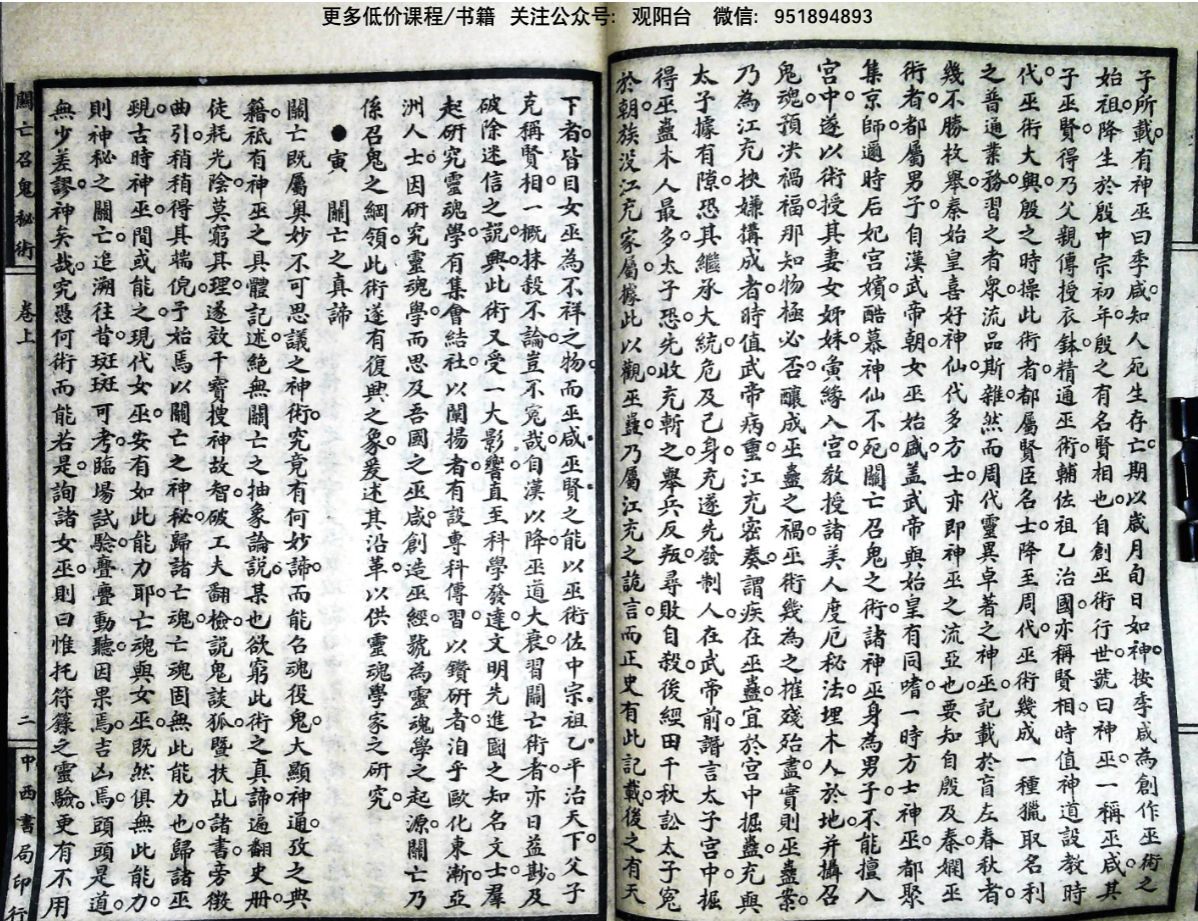 更多低价课程/书籍 关注公众号：观阳台 微信：951894893
子所載有神巫曰季咸知人死生存亡期以歲月旬日如神按季咸為創作巫術之
始祖降生於殷中宗初年殷之有名賢相也自創巫術行世號曰神巫一稱巫咸其
子巫賢得乃父親傳授衣鉢精通巫術輔佐祖乙治國亦稱賢相時值神道設教時
代巫術大興殷之時操此術者都屬賢臣名士降至周代巫術幾成一種獵取名利
之普通業務習之者眾流品斯雜然而周代靈異卓著之神巫記載於盲左春秋者
幾不勝枚舉秦始皇喜好神仙代多方士亦即神巫之流亞也要知自殷及秦嫻巫
術者都屬男子自漢武帝朝女巫始盛蓋武帝與始皇有同嗜一時方士神巫都聚
集京師邇時后妃宮嬪酷慕神仙不死關亡召鬼之術諸神巫身為男子不能擅入
宮中遂以術授其妻女姊妹夤緣入宮教授諸美人度厄秘法埋木人於地并攝召
鬼魂預決禍福那知物極必否釀成巫蠱之禍巫術幾為之摧殘殆盡實則巫蠱案
乃為江充挾嫌搆成者時值武帝病重江充密奏謂疾在巫蠱宜於宮中掘蠱充與
太子據有隙恐其繼承大統危及己身充遂先發制人在武帝前譖言太子宮中掘
得巫蠱木人最多太子恐先收充斬之舉兵反叛尋敗自殺後經田千秋訟太子冤
於朝族沒江充家屬據此以觀巫蠱乃屬江充之詭言而正史有此記載後之有天
下者皆目女巫為不祥之物而巫咸巫賢之能以巫術佐中宗祖乙平治天下父子
克稱賢相一概抹殺不論豈不冤哉自漢以降巫道大衰習關亡術者亦日益尠及
破除迷信之說興此術又受一大影響直至科學發達文明先進國之知名文士羣
起研究靈魂學有集會結社以闡揚者有設專科傳習以鑽研者洎乎歐化東漸亞
洲人士因研究靈魂學而思及吾國之巫咸創造巫經號為靈魂學之起源關亡乃
係召鬼之綱領此術遂有復興之象爰述其沿革以供靈魂學家之研究
●寅 關亡之真諦
關亡既屬奧妙不可思議之神術究竟有何妙諦而能召魂役鬼大顯神通攷之典
籍祇有神巫之具體記述絕無關亡之抽象論說某也欲窮此術之真諦遍翻史册
徒耗光陰莫窮其理遂效干寶搜神故智破工夫翻檢說鬼談狐暨扶乩諸書旁徵
曲引稍稍得其端倪予始焉以關亡之神秘歸諸亡魂亡魂固無此能力也歸諸巫
覡古時神巫間或能之現代女巫安有如此能力耶亡魂與女巫既然俱無此能力
則神秘之關亡追溯往昔斑斑可考臨場試驗亹亹動聽因果焉吉凶焉頭頭是道
無少差謬神矣哉究憑何術而能若是詢諸女巫則曰惟托符籙之靈驗更有不用
關亡召鬼秘術 卷上 二 中西書局印行